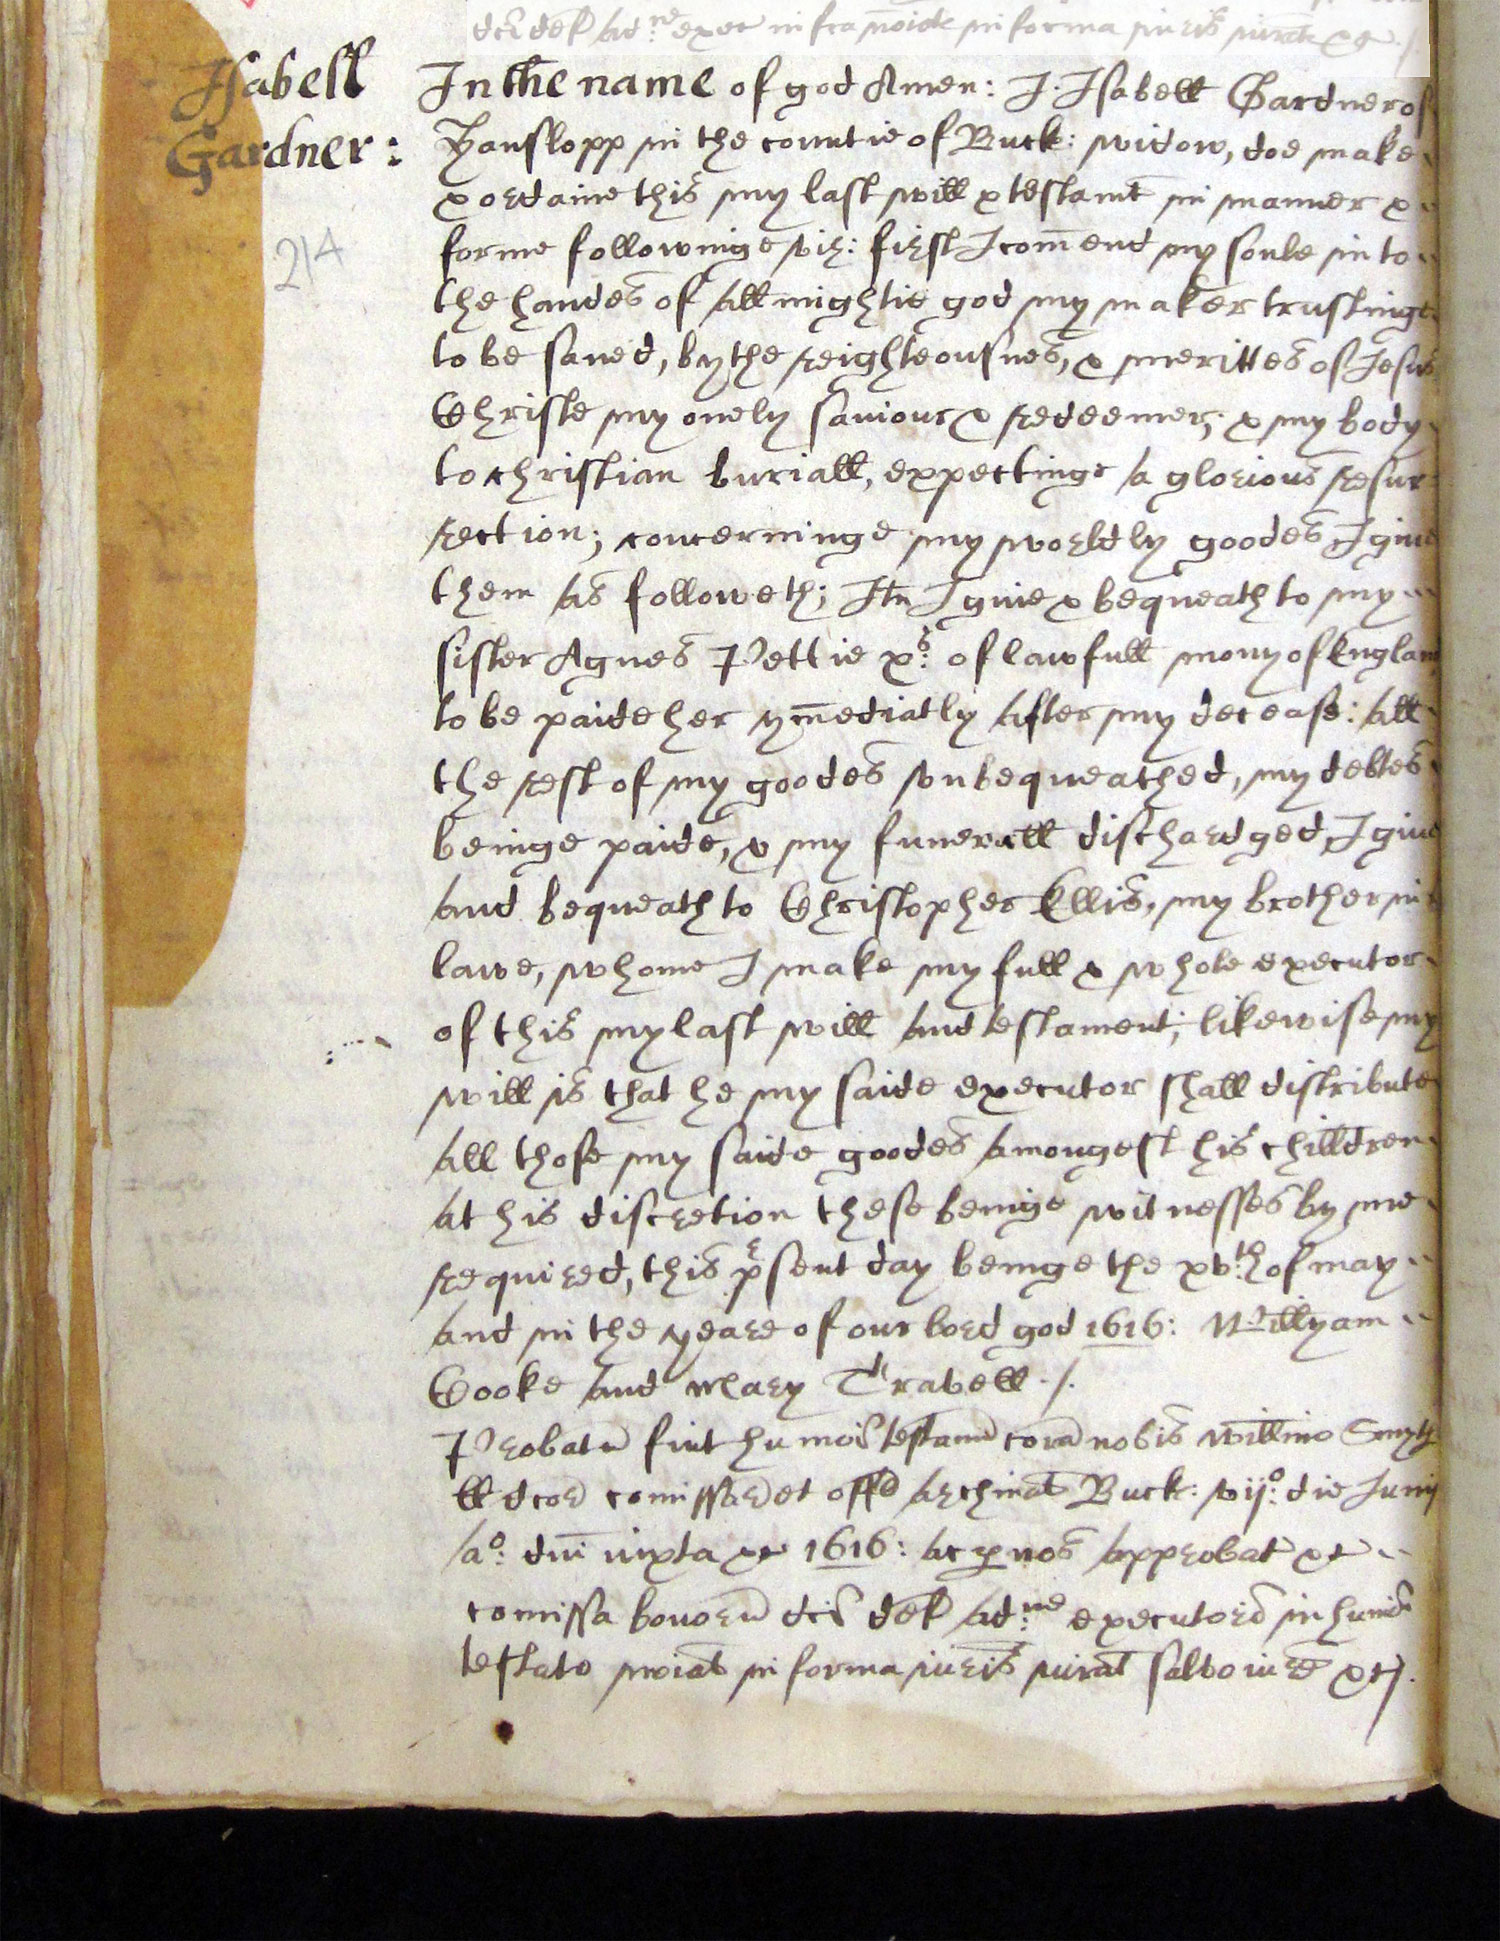 dcī def ad:ne exec in fra noiat in forma iuris iurat &c ./
Isabell
Gardner :
214
In the name of god Amen : I . Isabell Gardner of
Hanslopp in the countie of Buck : widow, doe make
& ordaine this my last will & testamt in manner &
forme followinge viz : first I com̄end my soule in to
the handes of allmightie god my maker trustinge
to be saved, by the reighteousnes, & merittes of Jesus
Christe my onely saviour & redeemer ; & my body
to christian buriall, expectinge a glorious resur
rection ; concerninge my worldly goodes I give
them as followeth ; Itm I give & bequeath to my
sister Agnes Pettie xs: of lawfull mony of England
to be paide her ym̄ediatly after my decease : all
the rest of my goodes vnbequeathed, my debtes
beinge paide, & my funerall dischardged, I give
and bequeath to Christopher Ellis, my brother in
lawe, whome I make my full & whole executor
of this my last will and testament ; likewise my
will is that he my saide executor shall distribute
all those my saide goodes amongest his chilldren
at his discretion these beinge witnesses by me
required, this pesent day beinge the xv:th of may
and in the yeare of our lord god 1616 : Willyam
Cooke and Mary Travell ./.
Probatū fuit humōi testamū corā nobis willmo Smyth
ll dcore comissar et offā Archinat Buck : vijo: die Junij
ao: dnī iuxta &c 1616 : ac p nos approbat &c
comissa bonorū dcī def ad:ne executori in huiōi
testato noiat in forma iuris iurat salvo iure &c).